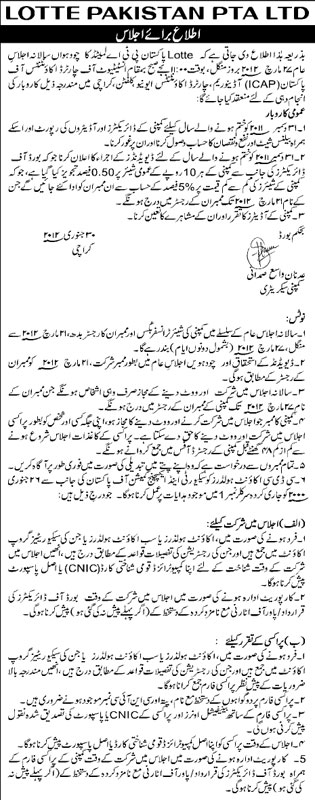 LOTTE PAKISTAN PTA LTD
اطلاع برائے اجلاس
بذریعہ ہذا اطلاع دی جاتی ہے کہ Lotte پاکستان پی ٹی اے لمیٹڈ کا چودہواں سالانہ اجلاس
عام ۲۷ مارچ ۲۰۱۲ بروز منگل، بوقت ۱۱:۰۰ بجے صبح بمقام انسٹیٹیوٹ آف چارٹرڈ اکاؤنٹنٹس آف
پاکستان (ICAP) آڈیٹوریم، چارٹرڈ اکاؤنٹنٹس ایونیو، کلفٹن، کراچی میں مندرجہ ذیل کاروبار کی
انجام دہی کے لئے منعقد کیا جائے گا:
عمومی کاروبار
۱۔ ۳۱ دسمبر ۲۰۱۱ کو ختم ہونے والے سال کیلئے کمپنی کے ڈائریکٹرز اور آڈیٹروں کی رپورٹ اور اسکے
ہمراہ بیلنس شیٹ اور نفع و نقصان کا حساب وصول کرنا اور ان پر غور کرنا۔
۲۔ ۳۱ دسمبر ۲۰۱۱ کو ختم ہونے والے سال کے لئے ڈیویڈنڈ کے اجراء کا اعلان کرنا جو کہ بورڈ آف
ڈائریکٹرز کی جانب سے کمپنی کے ہر 10 روپے کے عمومی شیئر پر 0.50 فیصد تجویز کیا گیا ہے، جو کہ
کمپنی کے شیئرز کی کم سے کم قیمت پر 5% فیصد کے حساب سے ان ممبران کو ادا کئے جائیں گے جن
کے نام ۲۱ مارچ ۲۰۱۲ تک ممبران کے رجسٹر میں درج ہونگے۔
۳۔ کمپنی کے آڈیٹرز کا تقرر اور ان کے مشاہرے کا تعین کرنا۔
بحکم بورڈ
۳۰ جنوری ۲۰۱۲
کراچی
عدنان واسع صمدانی
کمپنی سیکریٹری
نوٹس:
۱۔ سالانہ اجلاس عام کے سلسلے میں کمپنی کی شیئر ٹرانسفر بکس اور ممبران کا رجسٹر بدھ، ۲۱ مارچ ۲۰۱۲ سے
منگل، ۲۷ مارچ ۲۰۱۲ (بشمول دونوں ایام) بند رہے گا۔
۲۔ ڈیویڈنڈ کے استحقاق اور چودہویں اجلاس عام میں بطور ممبر شرکت، ۲۱ مارچ ۲۰۱۲ کو ممبران
کے رجسٹر کے مطابق ہوگی۔
۳۔ سالانہ اجلاس میں شرکت اور ووٹ دینے کے مجاز صرف وہی اشخاص ہونگے جن ممبران کے
نام ۲۷ مارچ ۲۰۱۲ تک کمپنی کے ممبران کے رجسٹر میں درج ہوں گے۔
۴۔ کمپنی کا ممبر جو اجلاس میں شرکت کرنے اور ووٹ دینے کا مجاز ہو، اپنی جگہ کسی اور شخص کو بطور پراکسی
اجلاس میں شرکت اور ووٹ دینے کا حق دے سکتا ہے۔ پراکسی کے کاغذات اجلاس شروع ہونے
سے کم از کم ۴۸ گھنٹے قبل کمپنی کے رجسٹرڈ آفس میں جمع کروانے ہونگے۔
۵۔ تمام ممبروں سے درخواست ہے کہ وہ اپنے پتے میں تبدیلی کی صورت میں فوری طور پر آگاہ کریں۔
۶۔ سی ڈی سی اکاؤنٹ ہولڈرز کو سیکیورٹی اینڈ ایکسچینج کمیشن آف پاکستان کی جانب سے ۲۶ جنوری
۲۰۰۰ کو جاری کردہ سرکلر نمبر 1 میں موجود ہدایات پر عمل کرنا ہوگا۔ جو درج ذیل ہیں:
(الف) اجلاس میں شرکت کیلئے:
۱۔ فرد ہونے کی صورت میں، اکاؤنٹ ہولڈرز یا سب اکاؤنٹ ہولڈرز یا جن کی سیکیوریٹیز گروپ
اکاؤنٹ میں جمع ہیں اور جن کی رجسٹریشن کی تفصیلات قواعد کے مطابق درج ہیں، انھیں اجلاس میں
شرکت کے وقت شناخت کے لئے اپنا کمپیوٹرائزڈ قومی شناختی کارڈ (CNIC) یا اصل پاسپورٹ
پیش کرنا ہوگا۔
۲۔ کارپوریٹ ادارہ ہونے کی صورت میں، اجلاس کے وقت بورڈ آف ڈائریکٹرز کی
قرارداد/پاور آف اٹارنی مع نامزد کردہ کے دستخط کے (اگر پہلے پیش نہ کی گئی ہو) پیش کرنا ہوگی۔
(ب) پراکسی کے تقرر کیلئے:
۱۔ فرد ہونے کی صورت میں، اکاؤنٹ ہولڈرز یا سب اکاؤنٹ ہولڈرز یا جن کی سیکیوریٹیز گروپ
اکاؤنٹ میں جمع ہیں اور جن کی رجسٹریشن کی تفصیلات قواعد کے مطابق درج ہیں، انھیں مندرجہ بالا
ضروریات کے پیش نظر پراکسی فارم جمع کرانا ہوگا۔
۲۔ پراکسی فارم پر دو گواہوں کے دستخط مع نام، پتہ اور سی این آئی سی نمبر موجود ہونے ضروری ہیں۔
۳۔ پراکسی فارم کے ساتھ بینیفیشل اونرز اور پراکسی کے CNIC یا پاسپورٹ کی تصدیق شدہ نقول
پیش کرنی ہوں گی۔
۴۔ اجلاس کے وقت پراکسی کو اپنا اصل کمپیوٹرائزڈ قومی شناختی کارڈ یا اصل پاسپورٹ پیش کرنا ہوگا۔
5۔ کارپوریٹ ادارہ ہونے کی صورت میں اجلاس میں شرکت کے وقت کمپنی کے پراکسی فارم کے
ہمراہ بورڈ آف ڈائریکٹرز کی قرارداد/پاور آف اٹارنی مع نامزد کردہ کے دستخط کے (اگر پہلے پیش نہ
کی گئی ہو) پیش کرنا ہوگی۔